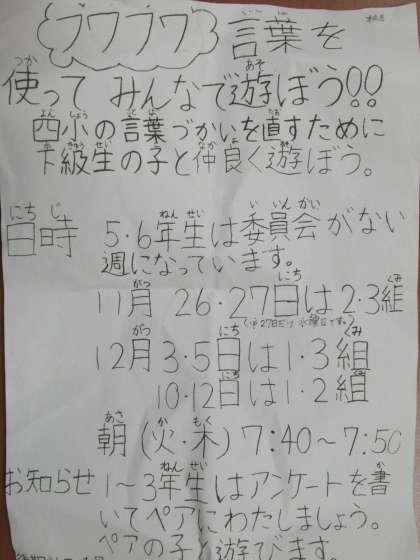 フワフワ言葉を
使ってみんなで遊ぼう!!
四小の言葉づかいを直すために
下級生の子と仲良く遊ぼう。
日時 5・6年生は委員会がない
週になっています。
11月 26・27日は2・3組
(※27日だけ水曜日です。)
12月3・5日は1・3組
10・12日は1・2組
朝(火・木)7:40~7:50
お知らせ 1~3年生はアンケートを書
いてペアにわたしましょう。
ペアの子と遊びます。